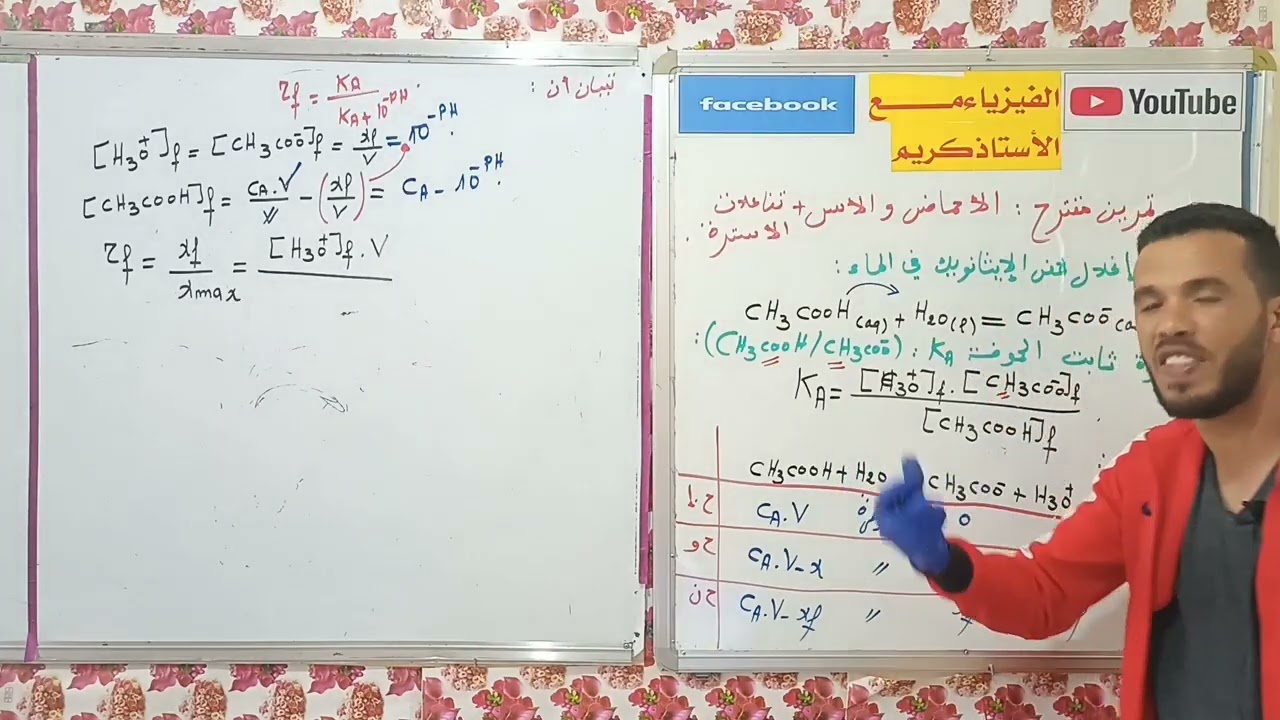 تبيان أن :
τf = KA / KA + 10^-PH
[H3O+]f = [CH3COO-]f = xf / V = 10^-PH .
[CH3COOH]f = CA.V / V - (xf / V) = CA - 10^-PH .
τf = xf / xmax = [H3O+]f . V
facebook
الفيزياء مع
الأستاذ كريم
YouTube
تمرين مقترح : الاحماض و الاسس + تفاعلات
الاسترة .
في الماء :
CH3COOH(aq) + H2O(l) = CH3COO-
ثابت الحموضة KA : (CH3COOH/CH3COO-) :
KA = [H3O+]f . [CH3COO-]f / [CH3COOH]f
CH3COOH + H2O CH3COO- + H3O+
ح.ا CA.V 0
ح و CA.V - x "
ح ن CA.V - xf " xf